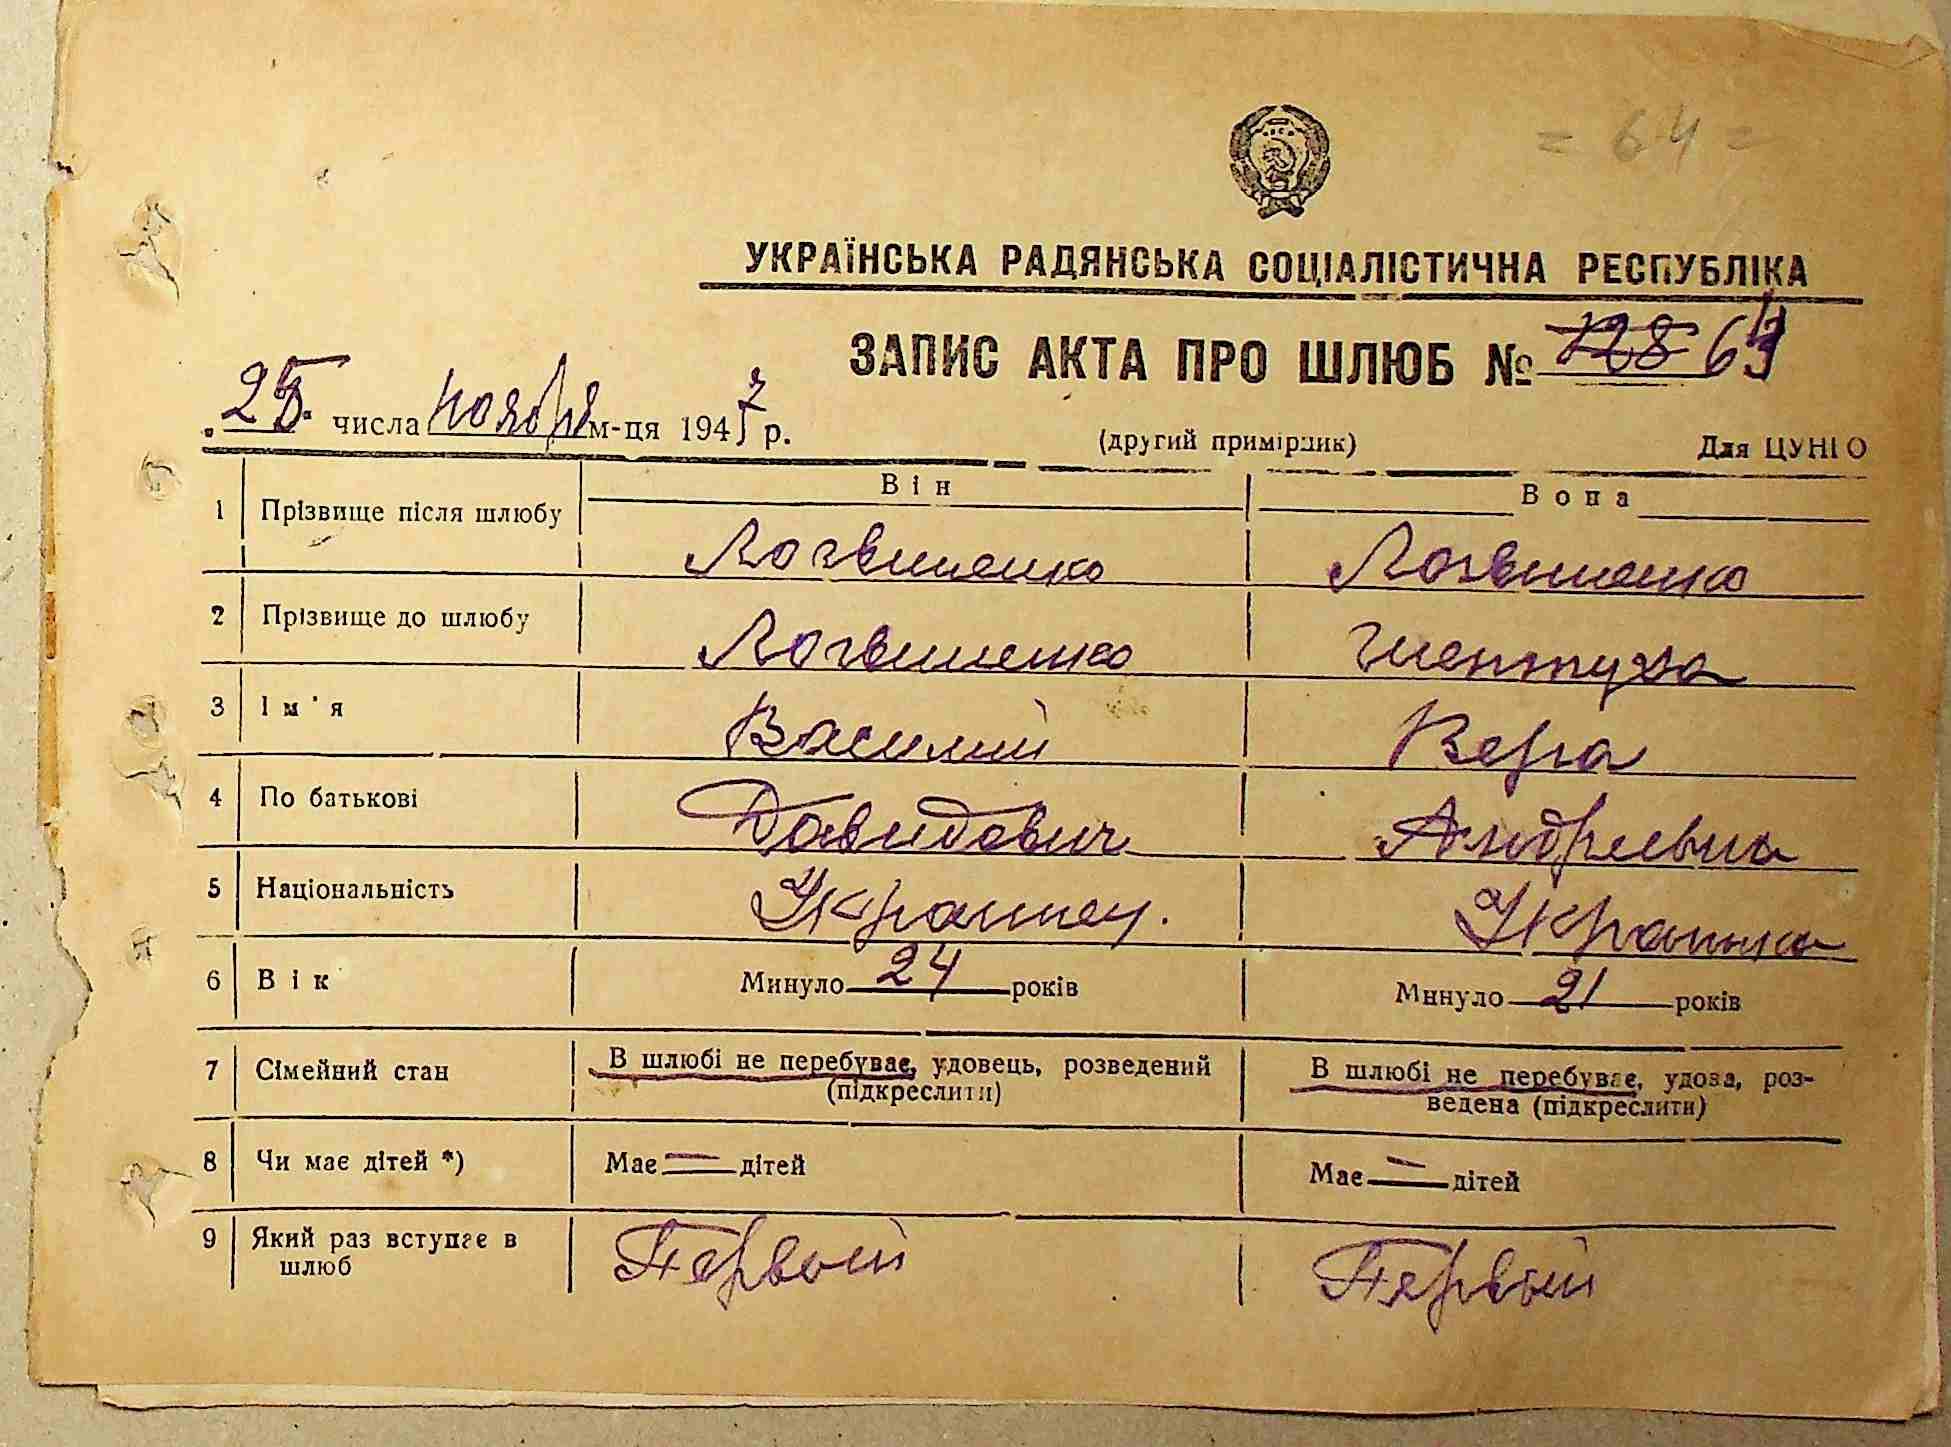 = 64 =
УКРАЇНСЬКА РАДЯНСЬКА СОЦІАЛІСТИЧНА РЕСПУБЛІКА
ЗАПИС АКТА ПРО ШЛЮБ № 128 64
25 числа ноября м-ця 1947 р.
(другий примірник) Для ЦУНГО
Він Вона
1 Прізвище після шлюбу Логвиненко Логвиненко
2 Прізвище до шлюбу Логвиненко Шептуха
3 Ім'я Василий Вера
4 По батькові Давидович Андреевна
5 Національність Украинец. Украинка
6 Вік Минуло 24 років Минуло 21 років
7 Сімейний стан В шлюбі не перебуває, удовець, розведений (підкреслити) В шлюбі не перебуває, удова, роз-
ведена (підкреслити)
8 Чи має дітей *) Має — дітей Має — дітей
9 Який раз вступає в шлюб Первый Первый